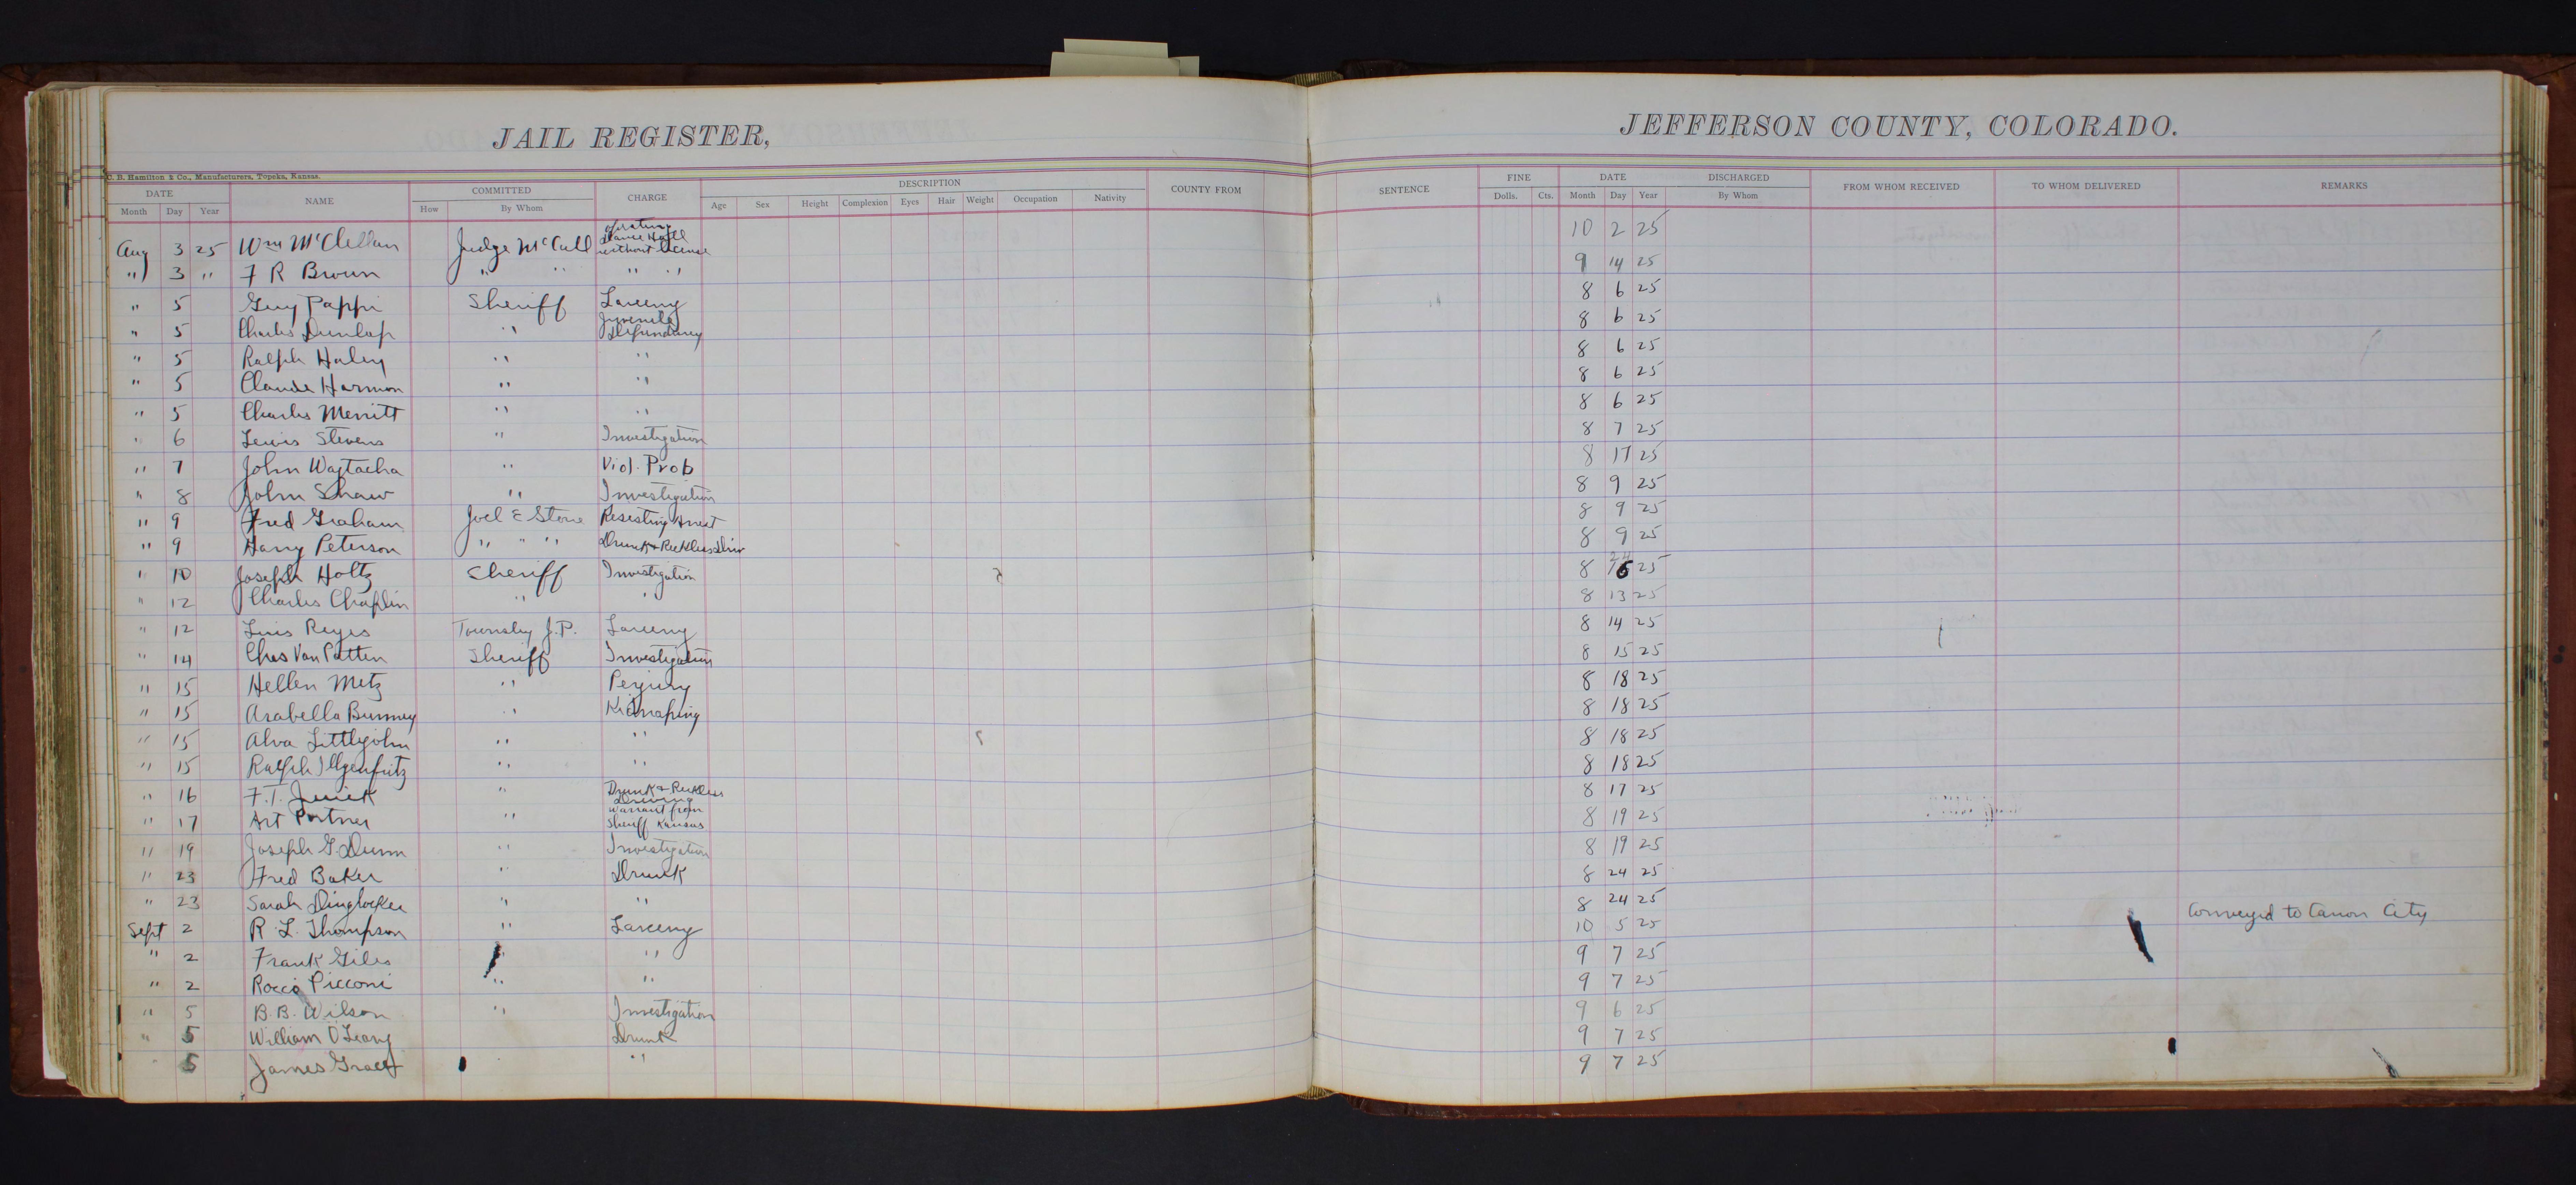 JAIL REGISTER, JEFFERSON COUNTY, COLORADO.
C. B. Hamilton & Co., Manufacturers, Topeka, Kansas.
DATE NAME COMMITTED CHARGE DESCRIPTION COUNTY FROM SENTENCE FINE DATE DISCHARGED FROM WHOM RECEIVED TO WHOM DELIVERED REMARKS
Month Day Year How By Whom Age Sex Height Complexion Eyes Hair Weight Occupation Nativity Dolls. Cts. Month Day Year By Whom
Aug 3 25 Wm McClellan Judge McCall Dance Hall without License 10 2 25
" 3 " F R Brown " " " " 9 14 25
" 5 Guy Pappi Sheriff Larceny 8 6 25
" 5 Charles Dunlap " Juvenile 8 6 25
" 5 Ralph Haley " " 8 6 25
" 5 Claude Harmon " " 8 6 25
" 5 Charles Merritt " " 8 6 25
" 6 Lewis Stevens " Investigation 8 7 25
" 7 John Wajtacha " Viol. Prob 8 17 25
" 8 John Shaw " Investigation 8 9 25
" 9 Fred Graham Joel E Stone Resesting Arrest 8 9 25
" 9 Harry Peterson " " " Drunk & Reckless Driv 8 9 25
" 10 Joseph Holtz Sheriff Investigation 8 25
" 12 Charles Chaplin " " 8 13 25
" 12 Luis Reyes Townsley J.P. Larceny 8 14 25
" 14 Chas Van Patten Sheriff Investigation 8 15 25
" 15 Hellen Metz " Perjury 8 18 25
" 15 Arabella Bunney " Kidnaping 8 18 25
" 15 Alva Littlejohn " " 8 18 25
" 15 Ralph Ilgenfritz " " 8 18 25
" 16 F.T. " Drunk & Reckless Driving 8 17 25
" 17 Art Portner " Warrant from Sheriff Kansas 8 19 25
" 19 Joseph G. Dunn " Investigation 8 19 25
" 23 Fred Baker " Drunk 8 24 25
" 23 Sarah Dinglocker " " 8 24 25
Sept 2 R. L. Thompson " Larceny 10 5 25 Conveyed to Canon City
" 2 Frank Giles " " 9 7 25
" 2 Rocco Picconi " " 9 7 25
" 5 B. B. Wilson " Investigation 9 6 25
" 5 William O'Leary Drunk 9 7 25
" 5 James " 9 7 25